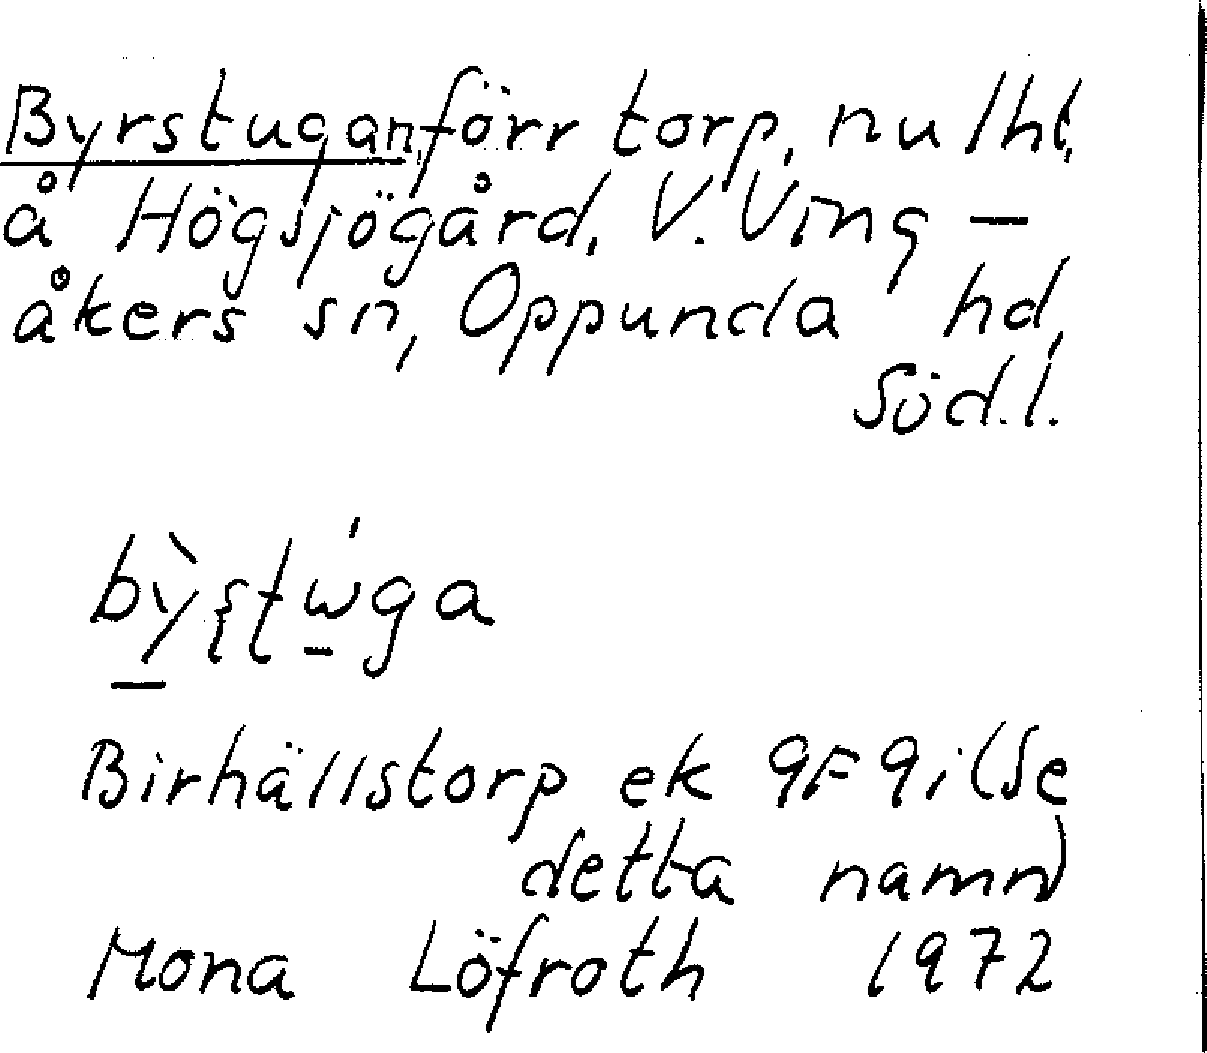 Byrstugan, förr torp, nu lht,
å Högsjögård, V. Ving-
åkers sn, Oppunda hd,
Söd.l.
bỳstẃga
Birhällstorp ek 9F9i (Se
detta namn)
Mona Löfroth 1972